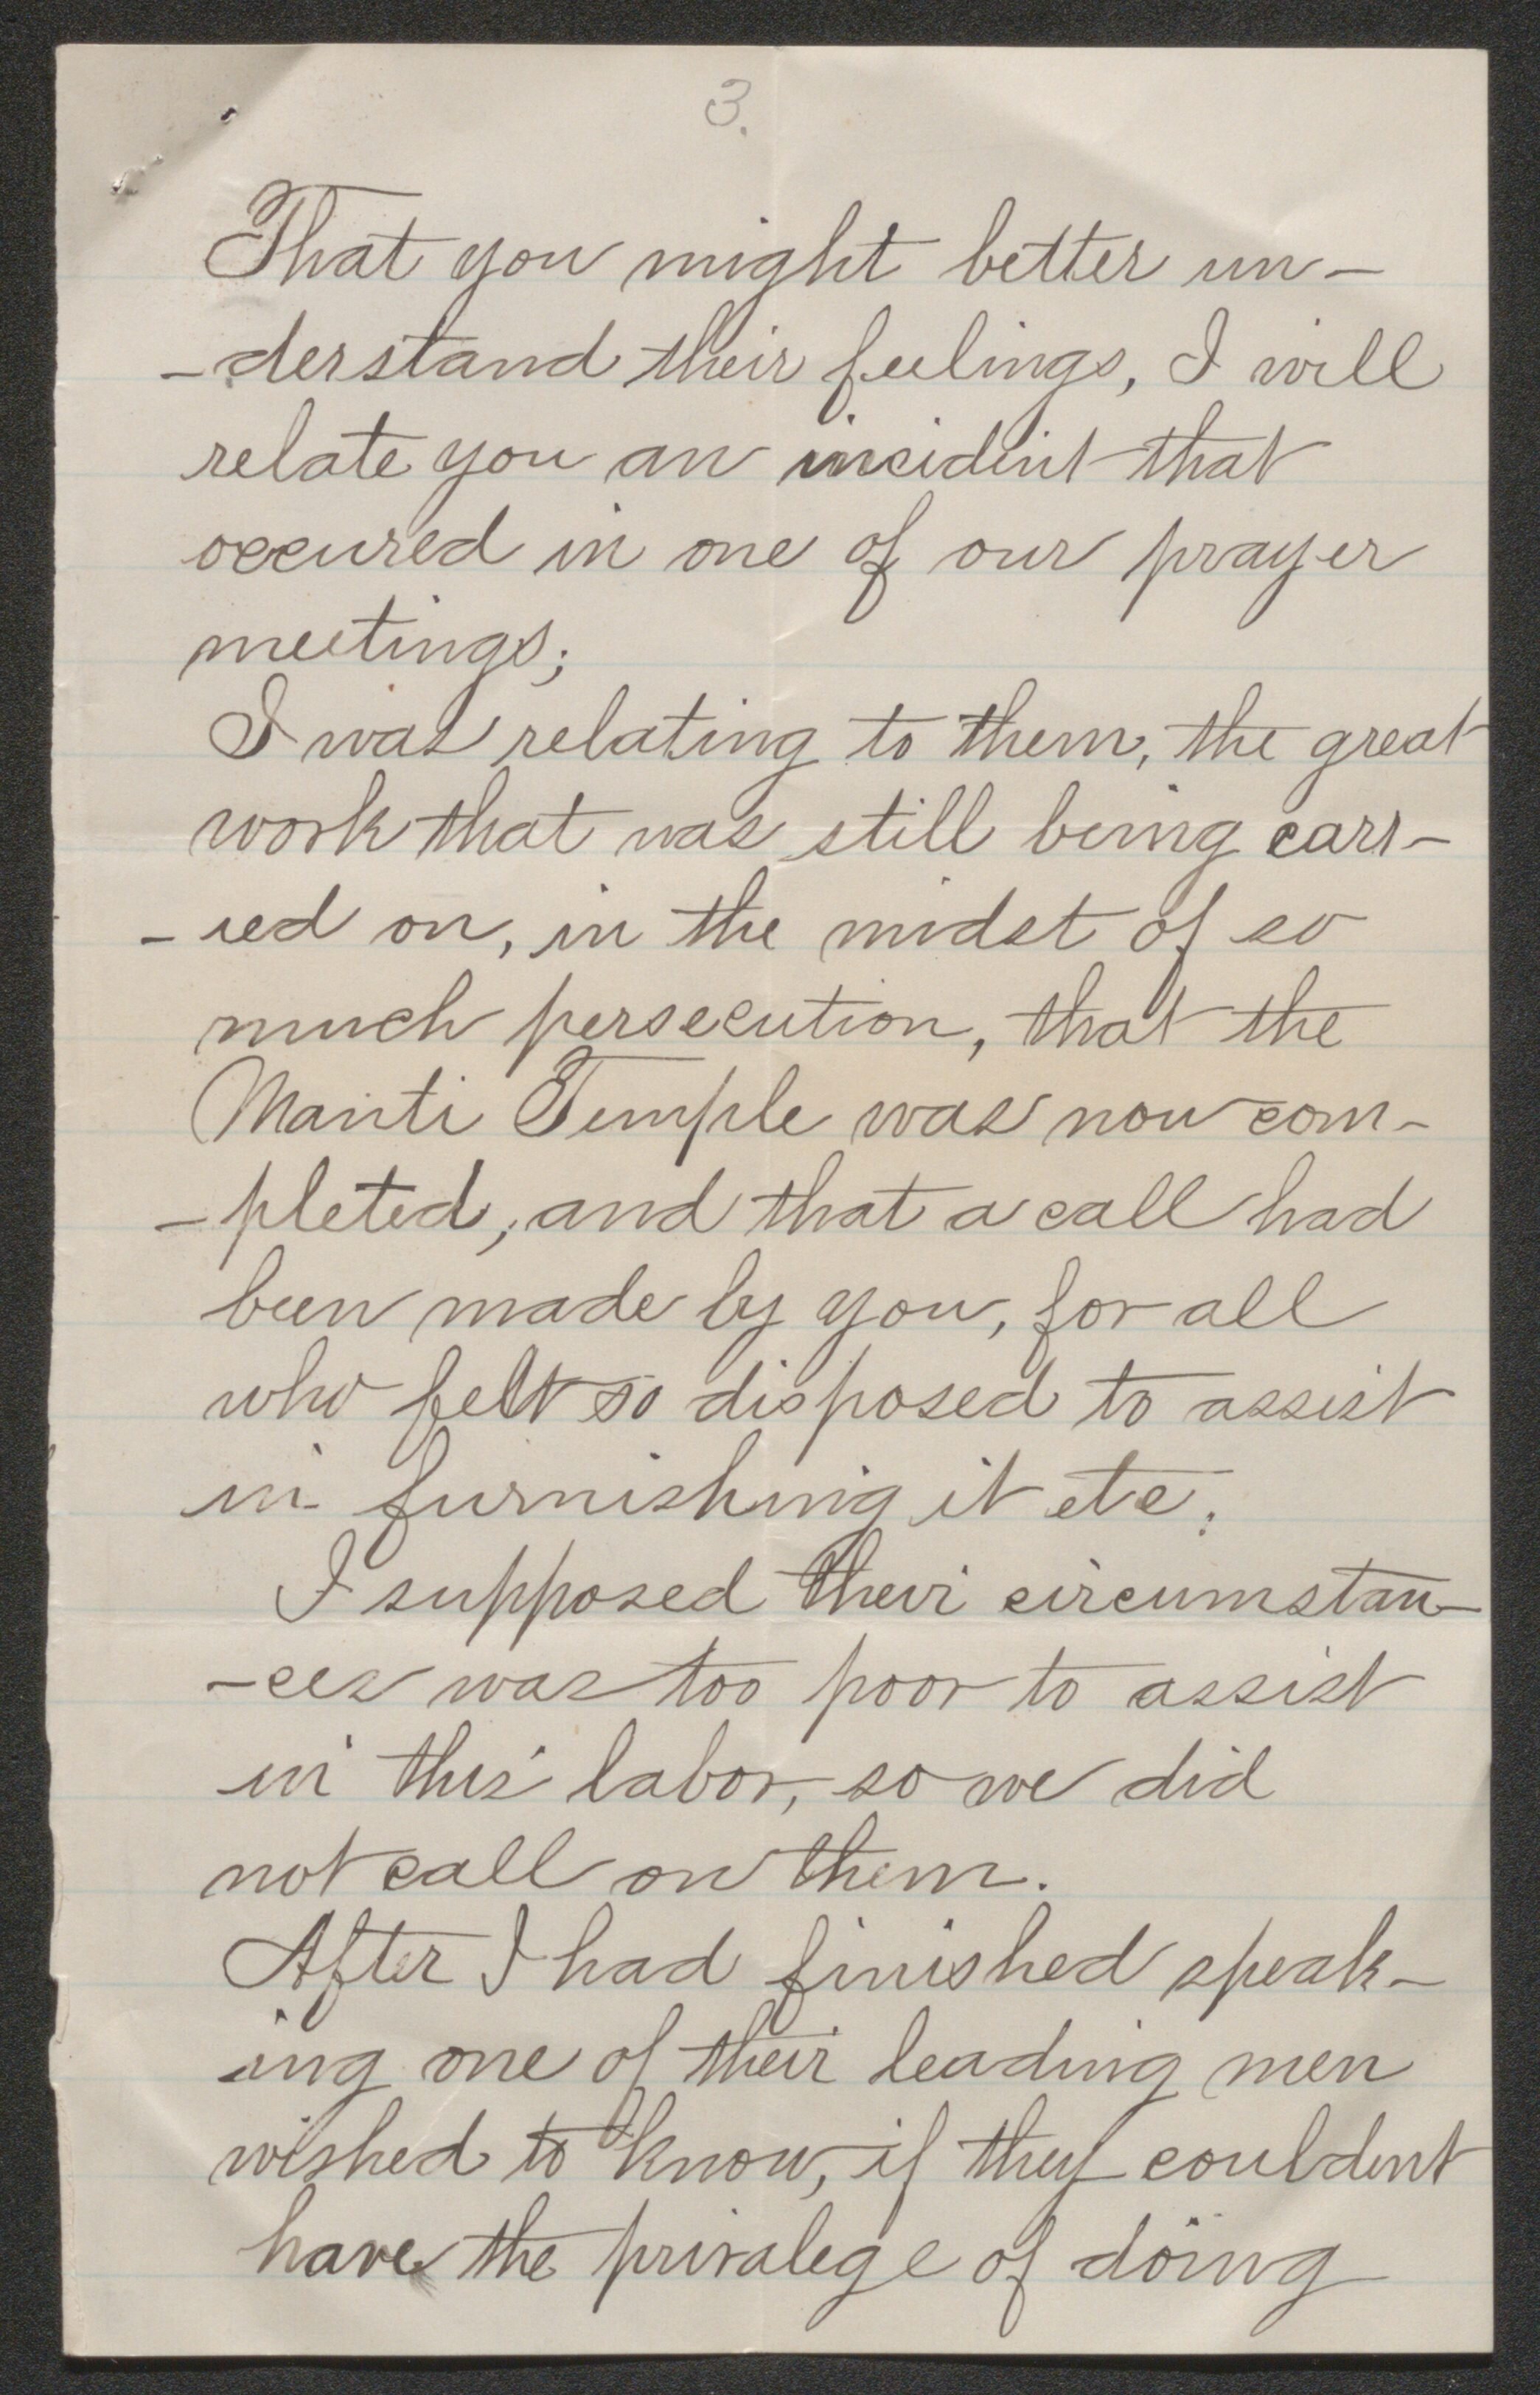 3.
That you might better un-
-derstand their feelings, I will
relate you an incident that
occured in one of our prayer
meetings;
I was relating to them, the great
work that was still being carr-
-ied on, in the midst of so
much persecution, that the
Manti Temple was now com-
-pleted, and that a call had
been made by you, for all
who felt so disposed to assist
in furnishing it etc.
I supposed their circumstan-
-ces was too poor to assist
in this labor, so we did
not call on them.
After I had finished speak-
ing one of their leading men
wished to know, if they couldent
have the privalege of doing